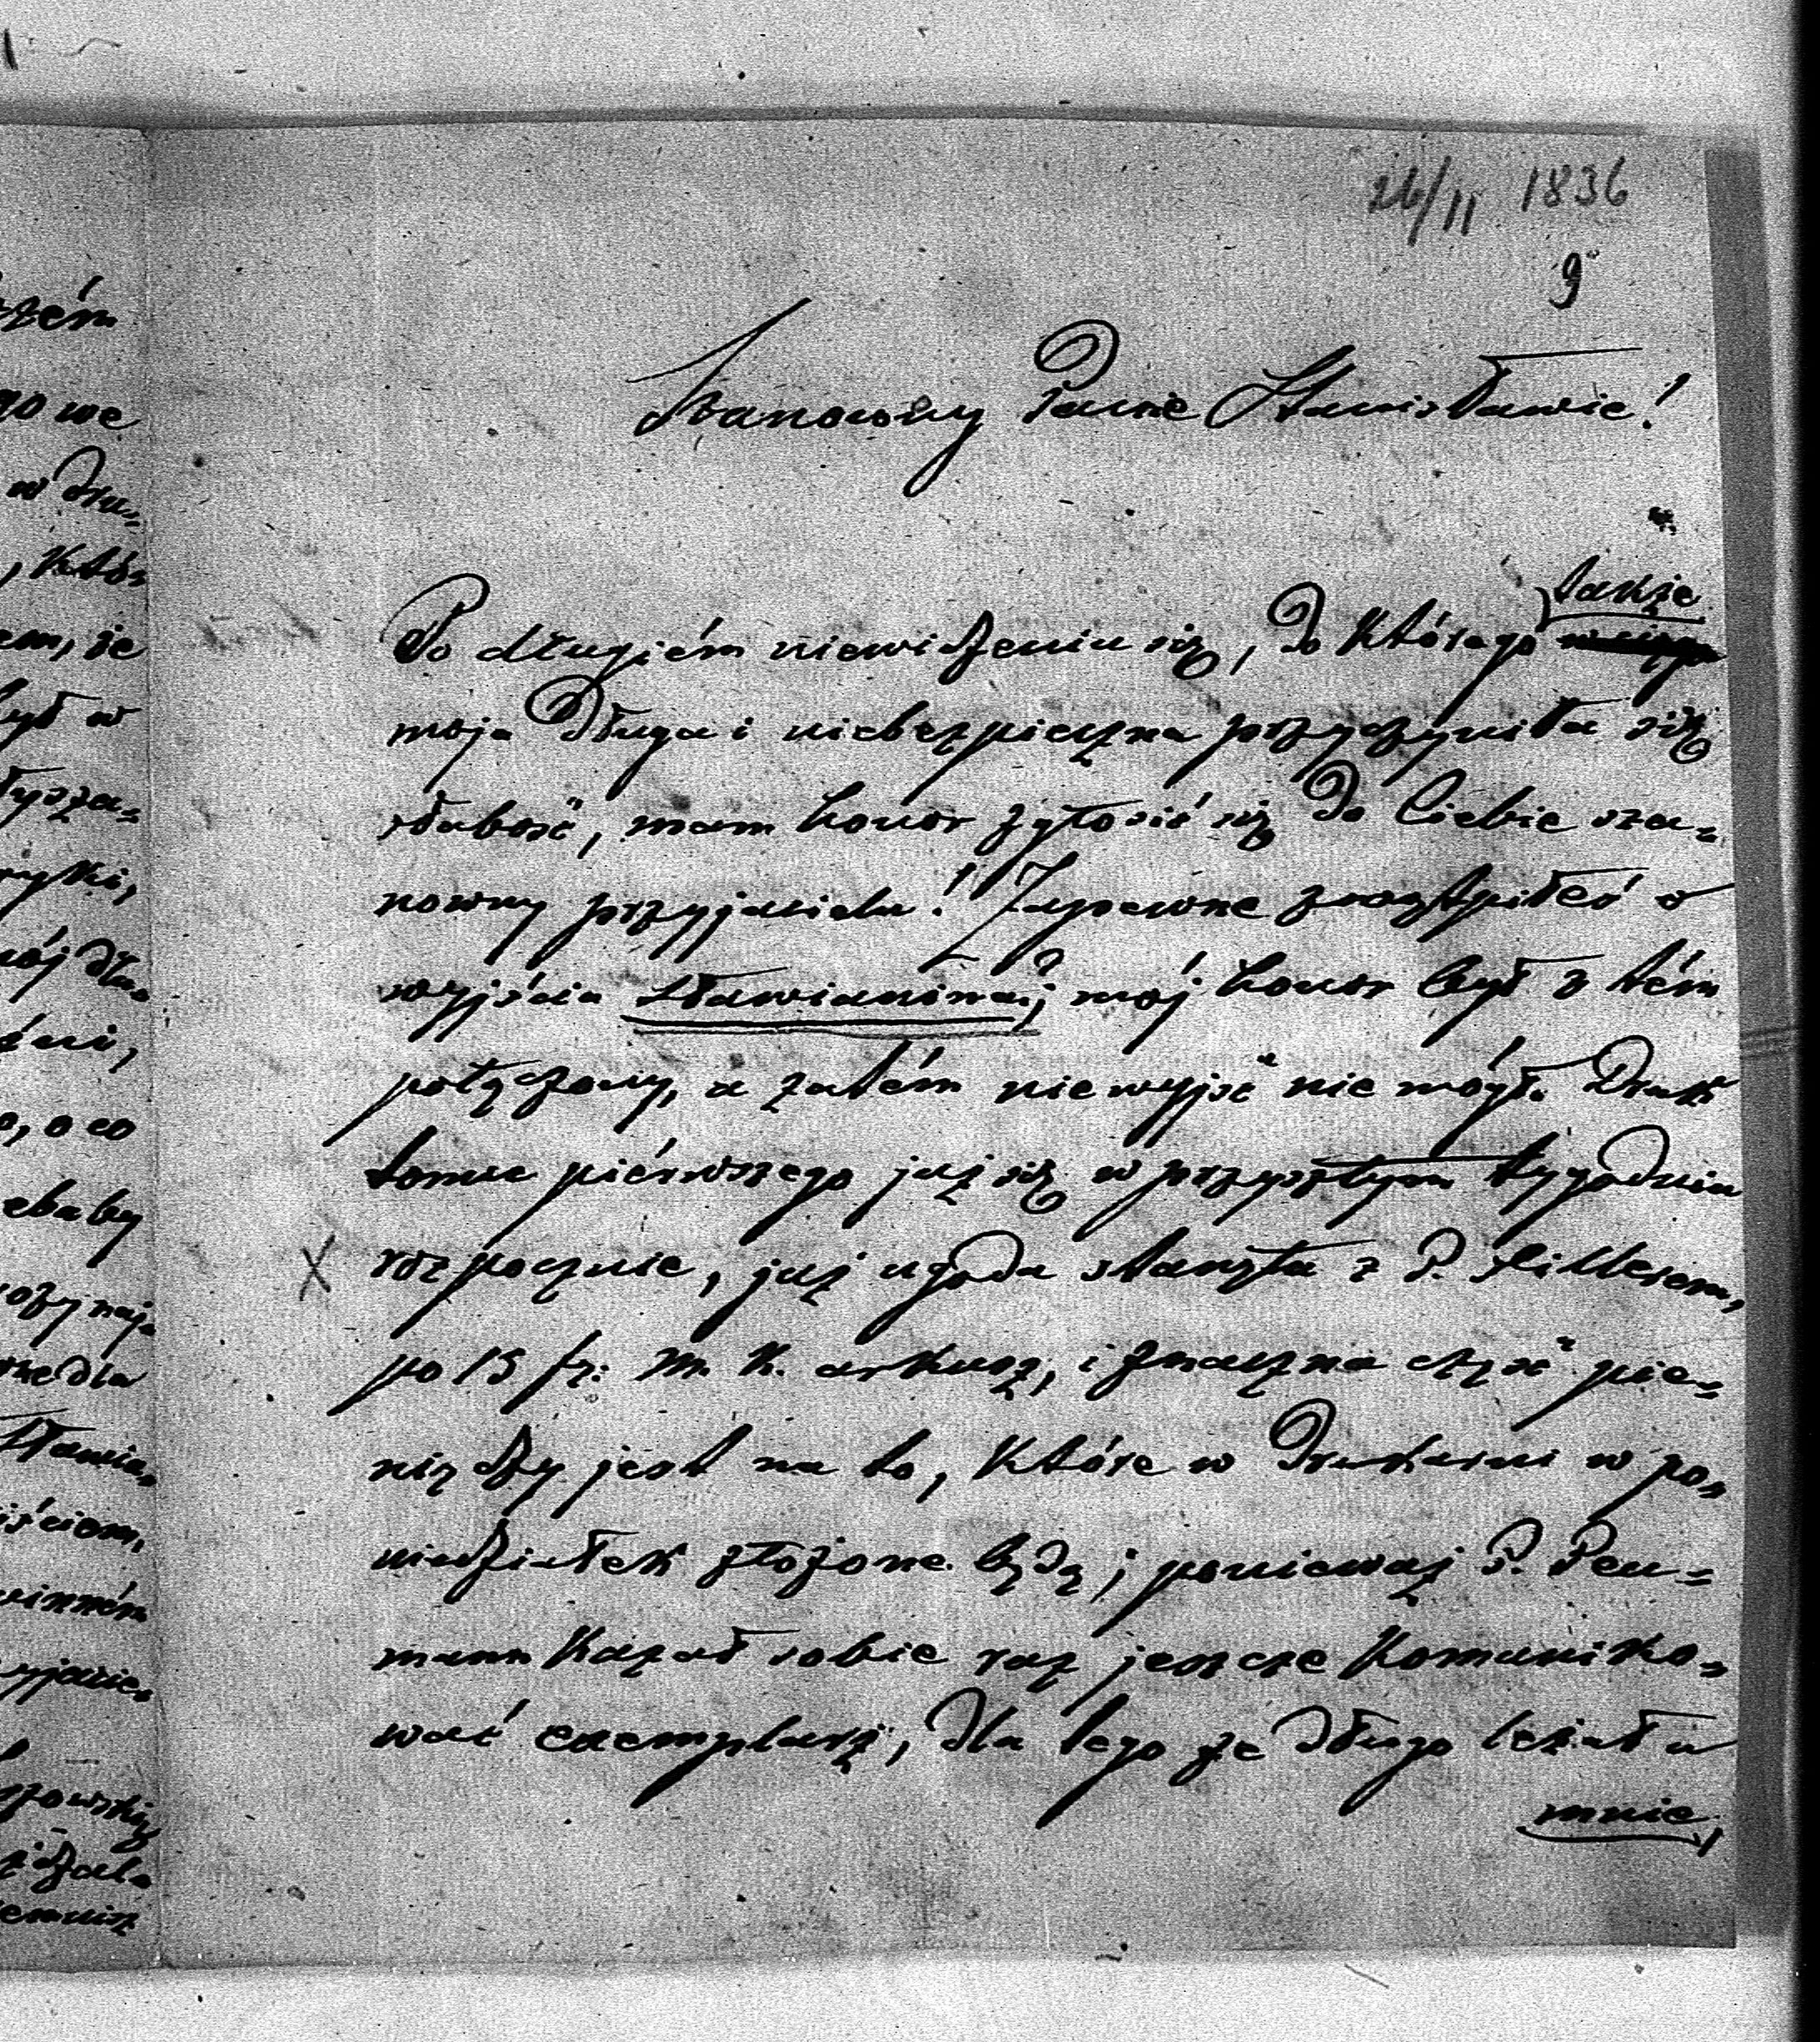 26/11 1836
9
Szanowny Panie Stanisławie!
także
Po długiém niewidzeniu się, do którego
moja długa i niebezpieczna przyczyniła się
słabość, mam honor zgłosić się do Ciebie sza=
nowny przyjacielu! Zapewne zwątpiłeś o
wyjściu Sławianina; mój honor był z tém
połączony, a zatém nie wyjść nie mógł. Druk
tomu piérwszego już się w przyszłym tygodniu
X rozpocznie, już ugoda stanęła z P. Pillerem,
po 15 fr. m. k. arkusz, i znaczna część pie=
niędzy jest na to, które w drukarni w po=
niedziałek złożone będą; ponieważ P. Neu=
mann kazał sobie raz jeszcze komuniko=
wać exemplarz, dla tego że długo leżał u
mnie,
zém
go we
w dru=
, któr
em, że
był w
łysza=
ryki,
mój dłu=
o, o co
ebaby
dla
Sławia=
iściem,
winném
yjacie=